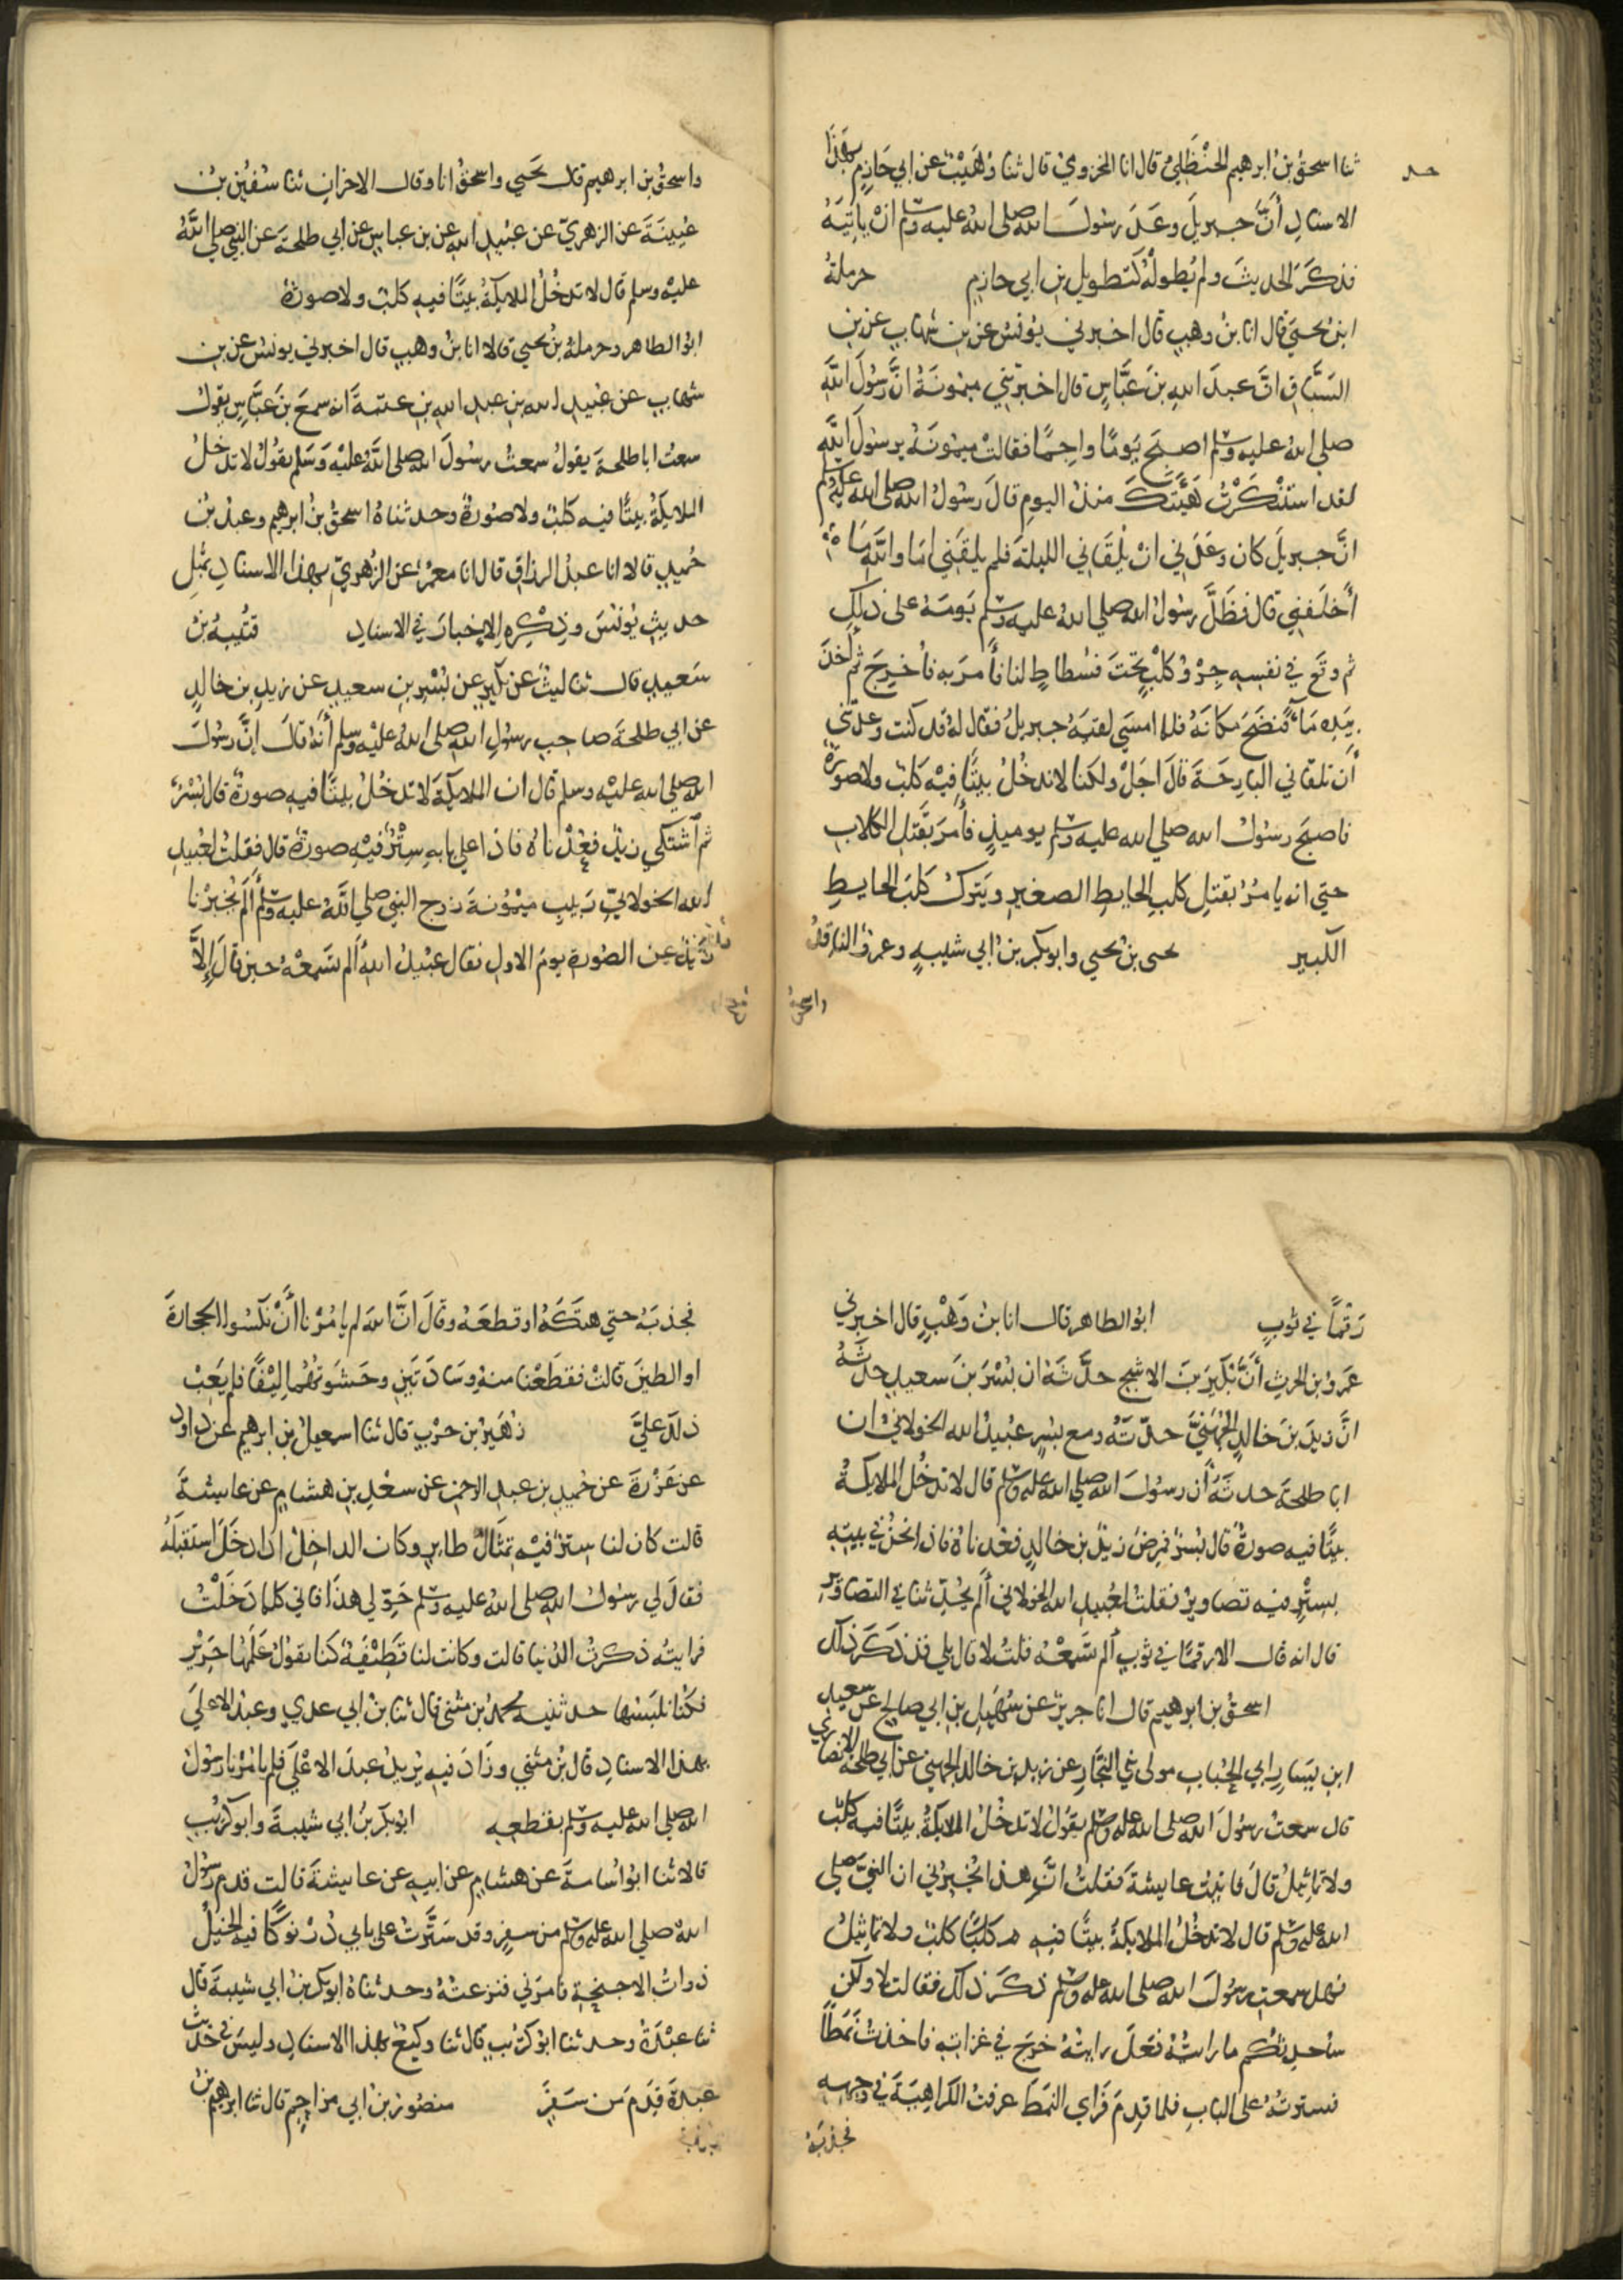 حد
ثنا اسحق بن ابرهيم الحنظلي قال انا المخزومي قال ثنا وهيب عن ابي حازم بهذا
الاسناد أنّ جبريل وعد رسول الله صلى الله عليه وسلم ان يأتيه
فذكر الحديث ولم يطوله كتطويل بن ابي حازم حرملة
ابن يحيى قال انا بن وهب قال اخبرني يونس عن بن شهاب عن بن
السباق ان عبد الله بن عباس قال اخبرتني ميمونة انّ رسول الله
صلى الله عليه وسلم اصبح يوما واجما فقالت ميمونة يرسول الله
لقد استنكرت هيئتك منذ اليوم قال رسول الله صلى الله عليه وسلم
انّ جبريل كان وعدني انْ يلقاني الليلة فلم يلقني اما والله ما
أخلفني قال فظلّ رسول الله صلي الله عليه وسلم يومه على ذلك
ثم وقع في نفسه جرو كلب تحت فسطاط لنا فأمر به فأخرج ثم أخذ
بيده ماء فنضح مكانه فلما امسي لقيه جبريل فقال له قد كنت وعدتني
أن تلقاني البارحة قال اجل ولكنا لا ندخل بيتا فيه كلب ولا صورة
فاصبح رسول الله صلي الله عليه وسلم يوميذ فأمر بقتل الكلاب
حتي انه يامر بقتل كلب الحايط الصغير ويترك كلب الحايط
الكبير يحيى بن يحيي وابو بكر بن ابي شيبة وعمرو الناقد
واسحق
واسحق بن ابرهيم قال يحيي واسحق انا وقال الاخران ثنا سفين بن
عيينة عن الزهري عن عبيد الله عن بن عباس عن ابي طلحة عن النبي صلي الله
عليه وسلم قال لا تدخل الملايكة بيتا فيه كلب ولا صورة
ابو الطاهر وحرملة بن يحيي قالا انا بن وهب قال اخبرني يونس عن بن
شهاب عن عبيد الله بن عبد الله بن عتبة انه سمع بن عباس يقول
سمعت ابا طلحة يقول سمعت رسول الله صلى الله عليه وسلم يقول لا تدخل
الملايكة بيتا فيه كلب ولا صورة وحدثناه اسحق بن ابرهيم وعبد بن
حميد قالا انا عبد الرزاق قال انا معمر عن الزهري بهذا الاسناد بمثل
حديث يونس وذكره الاخبار في الاسناد قتيبة بن
سعيد قال ثنا ليث عن بكير عن بسر بن سعيد عن زيد بن خالد
عن ابي طلحة صاحب رسول الله صلى الله عليه وسلم أنه قال إنّ رسول
الله صلي الله عليه وسلم قال ان الملايكة لا تدخل بيتا فيه صورة قال بسر
ثم اشتكي زيد فعدناه فاذا علي بابه ستر فيه صورة قال فقلت لعبيد
الله الخولاني ربيب ميمونة زوج النبي صلي الله عليه وسلم ألم يخبرنا
زيد عن الصورة يوم الاول فقال عبيد الله ألم تسمعه حين قال إلا
رقما في ثوب ابو الطاهر قال انا بن وهب قال اخبرني
عمرو بن الحرث أنّ بكير بن الاشج حدثه ان بسر بن سعيد حدثه
انّ زيد بن خالد الجهنيّ حدثه ومع بسر عبيد الله الخولاني ان
ابا طلحة حدثه أن رسول الله صلي الله عليه وسلم قال لا تدخل الملايكة
بيتا فيه صورة قال بسر فمرض زيد بن خالد فعدناه فاذا نحن في بيته
بستر فيه تصاوير فقلت لعبيد الله الخولاني ألم يحدثنا في التصاوير
قال انه قال الا رقما في ثوب ألم تسمعه قلت لا قال بلي قد ذكر ذلك
اسحق بن ابرهيم قال انا جرير عن سهيل بن ابي صالح عن سعيد
ابن يسار ابي الحباب مولى بني النجار عن زيد بن خالد الجهني عن ابي طلحة الانصاري
قال سمعت رسول الله صلى الله عليه وسلم يقول لا تدخل الملايكة بيتا فيه كلب
ولا تماثيل قال فاتيت عايشة فقلت انّ هذا يخبرني ان النبيّ صلي
الله عليه وسلم قال لا تدخل الملايكة بيتا فيه كلب ولا تماثيل
فهل سمعت رسول الله صلى الله عليه وسلم ذكر ذلك فقالت لا ولكن
ساحدثكم ما رايته فعل رايته خرج في غزاته فاخذت نمطا
فسترته على الباب فلما قدم فراي النمط عرفت الكراهية في وجهه
فجذبه
فجذبه حتي هتكه او قطعه وقال انّ الله لم يامرنا أن نكسوا الحجارة
او الطين قالت فقطعنا منه وسادتين وحشوتهما ليفا فلم يعب
ذلك عليّ زهير بن حرب قال ثنا اسمعيل بن ابرهيم عن داود
عن عزرة عن حميد بن عبد الرحمن عن سعد بن هشام عن عايشة
قالت كان لنا ستر فيه تمثال طاير وكان الداخل اذا دخل استقبله
فقال لي رسول الله صلى الله عليه وسلم حولي هذا فاني كلما دخلت
فرايته ذكرت الدنيا قالت وكانت لنا قطيفة كنا نقول علمها حرير
فكنا نلبسها حدثنيه محمد بن مثنى قال ثنا بن ابي عدي وعبد الاعلي
بهذا الاسناد قال بن مثني وزاد فيه يريد عبد الاعلي فلم يامرنا رسول
الله صلي الله عليه وسلم بقطعه ابو بكر بن ابي شيبة وابو كريب
قالا ثنا ابو اسامة عن هشام عن ابيه عن عايشة قالت قدم رسول
الله صلي الله عليه وسلم من سفر وقد سترت على بابي درنوكا فيه الخيل
ذوات الاجنحة فامرني فنزعته وحدثناه ابو بكر بن ابي شيبة قال
ثنا عبدة وحدثنا ابو كريب قال ثنا وكيع بهذا الاسناد وليس في حديث
عبدة قدم من سفر منصور بن ابي مزاحم قال ثنا ابرهيم بن